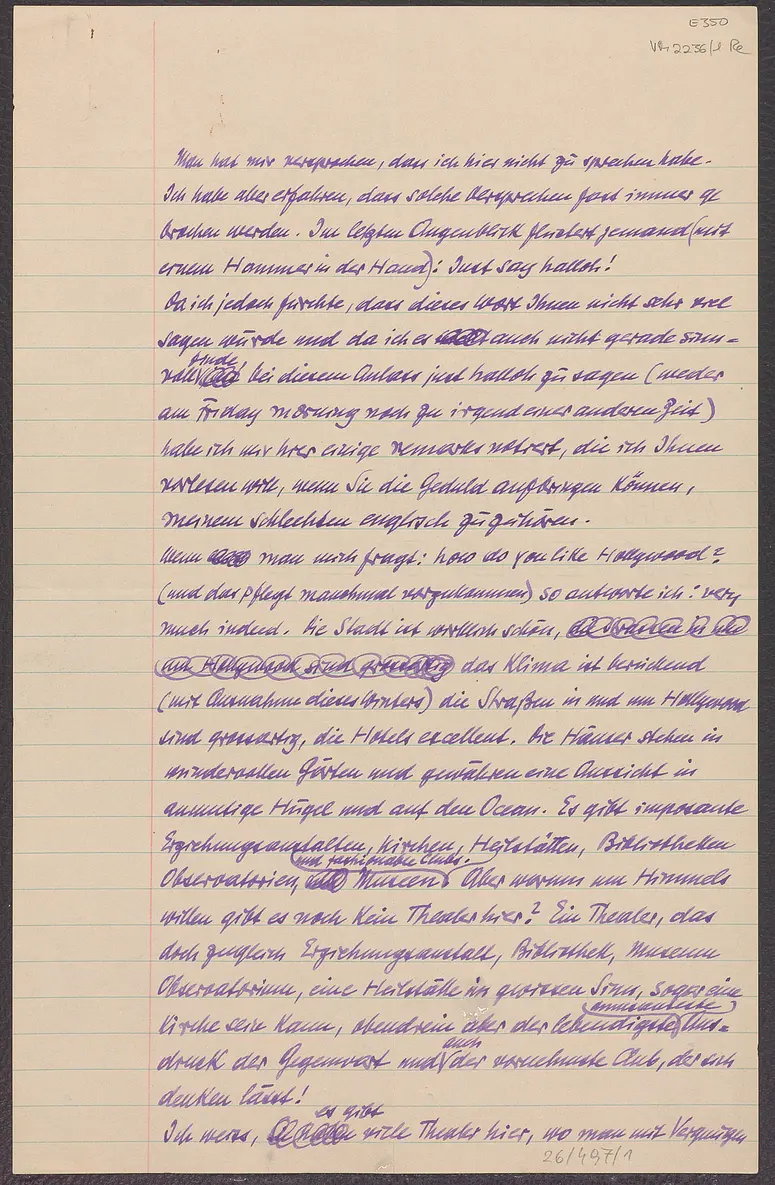 E350
VM 2236/1 Re
Man hat mir versprochen, dass ich hier nicht zu sprechen habe.
Ich habe aber erfahren, dass solche Versprechen fast immer ge
brochen werden. Im letzten Augenblick flüstert jemand (mit
einem Hammer in der Hand): Just say halloh!
Da ich jedoch fürchte, dass dieses Wort Ihnen nicht sehr viel
sagen würde und da ich es auch nicht gerade sinn=
finde,
voll bei diesem Anlass just halloh zu sagen (weder
am Friday morning noch zu irgend einer anderen Zeit)
habe ich mir hier einige remarks notiert, die ich Ihnen
vorlesen will, wenn Sie die Geduld aufbringen können,
meinem schlechten englisch zuzuhören.
Wenn man mich fragt: how do you like Hollywood?
(und das pflegt manchmal vorzukommen) so antworte ich: very
much indeed. Die Stadt ist wirklich schön,
um Hollywood sind grossartig das Klima ist berückend
(mit Ausnahme dieses Winters) die Straßen in und um Hollywood
sind grossartig, die Hotels excellent. Die Häuser stehen in
wundervollen Gärten und gewähren eine Aussicht in
anmutige Hügel und auf den Ocean. Es gibt imposante
Erziehungsanstalten, Kirchen, Heilstätten, Bibliotheken
und fashionable Clubs.
Observatorien, Museen. Aber warum um Himmels
willen gibt es noch kein Theater hier? Ein Theater, das
doch zugleich Erziehungsanstalt, Bibliothek, Museum
Observatorium, eine Heilstätte in gewissem Sinn, sogar eine
amüsanteste
Kirche sein kann, obendrein aber der lebendigste Aus=
auch
druck der Gegenwart und der vornehmste Club, der sich
denken lässt!
es gibt
Ich weiss, viele Theater hier, wo man mit Vergnügen
26/497/1